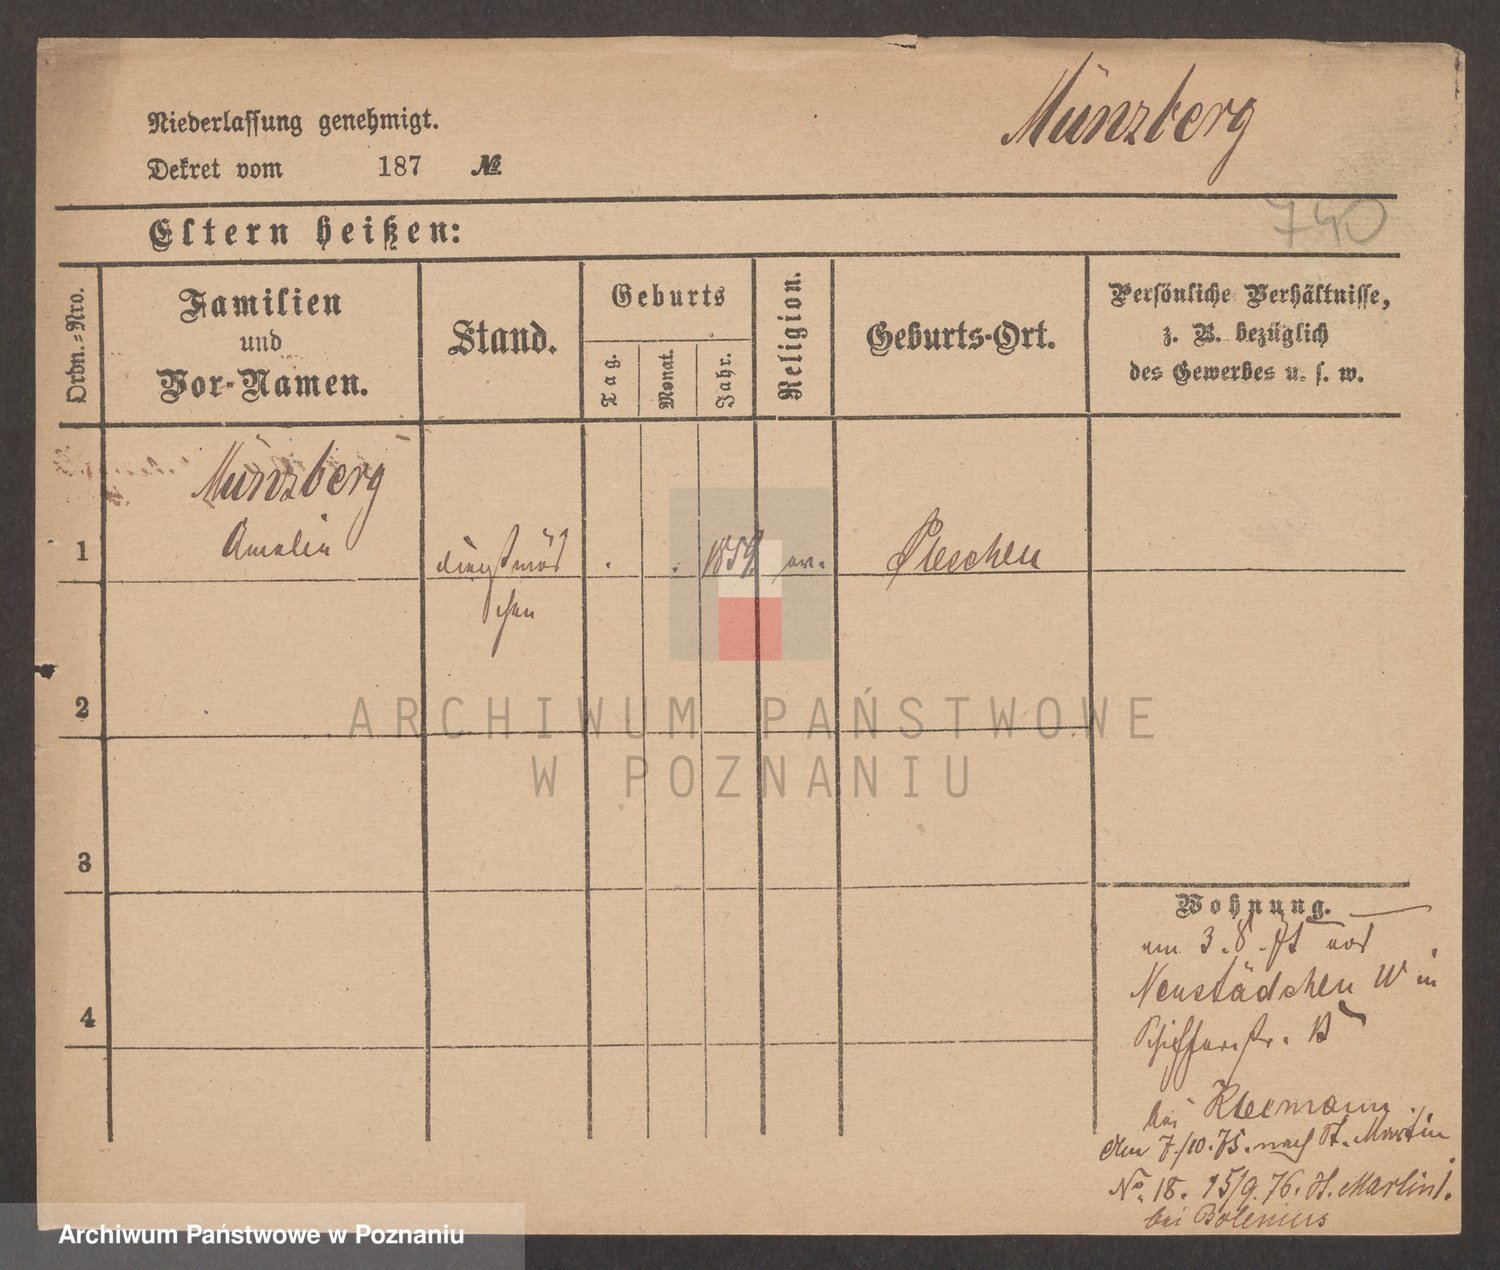 Münzberg
Niederlassung genehmigt.
Dekret vom 187 №
740
Eltern heißen:
Ordn.-Nro.
Familien
und
Vor-Namen.
Stand.
Geburts
Tag.
Monat.
Jahr.
Religion.
Geburts-Ort.
Persönliche Verhältnisse,
z. B. bezüglich
des Gewerbes u. s. w.
Münzberg
1 Amalia Dienstmäd 1859 ev. Pleschen
chen
2
ARCHIWUM PAŃSTWOWE
W POZNANIU
3
Wohnung.
am 3.8.75 von
Neustädchen W in
Schifferstr. 13
bei Kleemann
Am 7/10.75. nach St. Martin
No. 18. 15/9.76. St. Martin 1.
bei
4
Archiwum Państwowe w Poznaniu